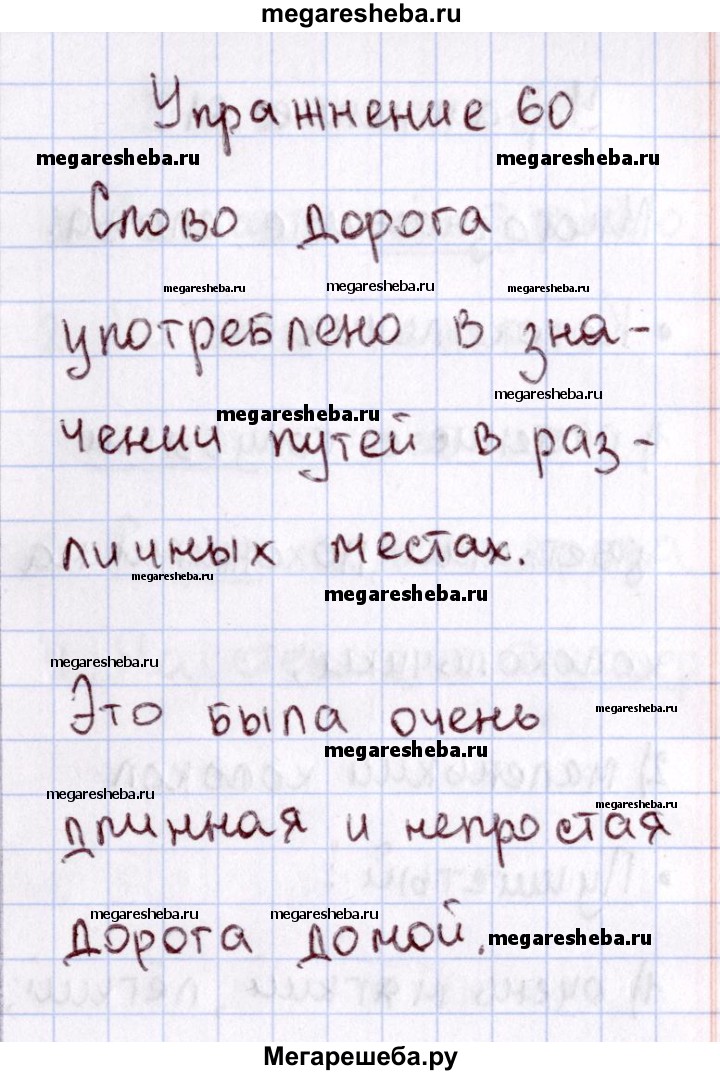 megaresheba.ru
Упражнение 60
megaresheba.ru megaresheba.ru
Слово дорога
megaresheba.ru megaresheba.ru megaresheba.ru
употреблено в зна-
megaresheba.ru
megaresheba.ru
чении путей в раз-
личных местах.
megaresheba.ru
megaresheba.ru
megaresheba.ru
Это была очень
megaresheba.ru
megaresheba.ru
megaresheba.ru
megaresheba.ru
длинная и непростая
megaresheba.ru megaresheba.ru
дорога домой.
megaresheba.ru
Мегарешеба.ру